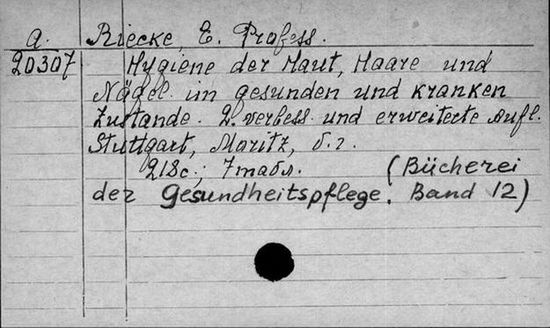 a. Riecke, E. Profess.
20307 Hygiene der Haut, Haare und
Nägel im gesunden und kranken
Zustande. 2. verbess. und erweiterte Aufl.
Stuttgart, Moritz, б.г.
218с.; 7табл. (Bücherei
der Gesundheitspflege. Band 12)